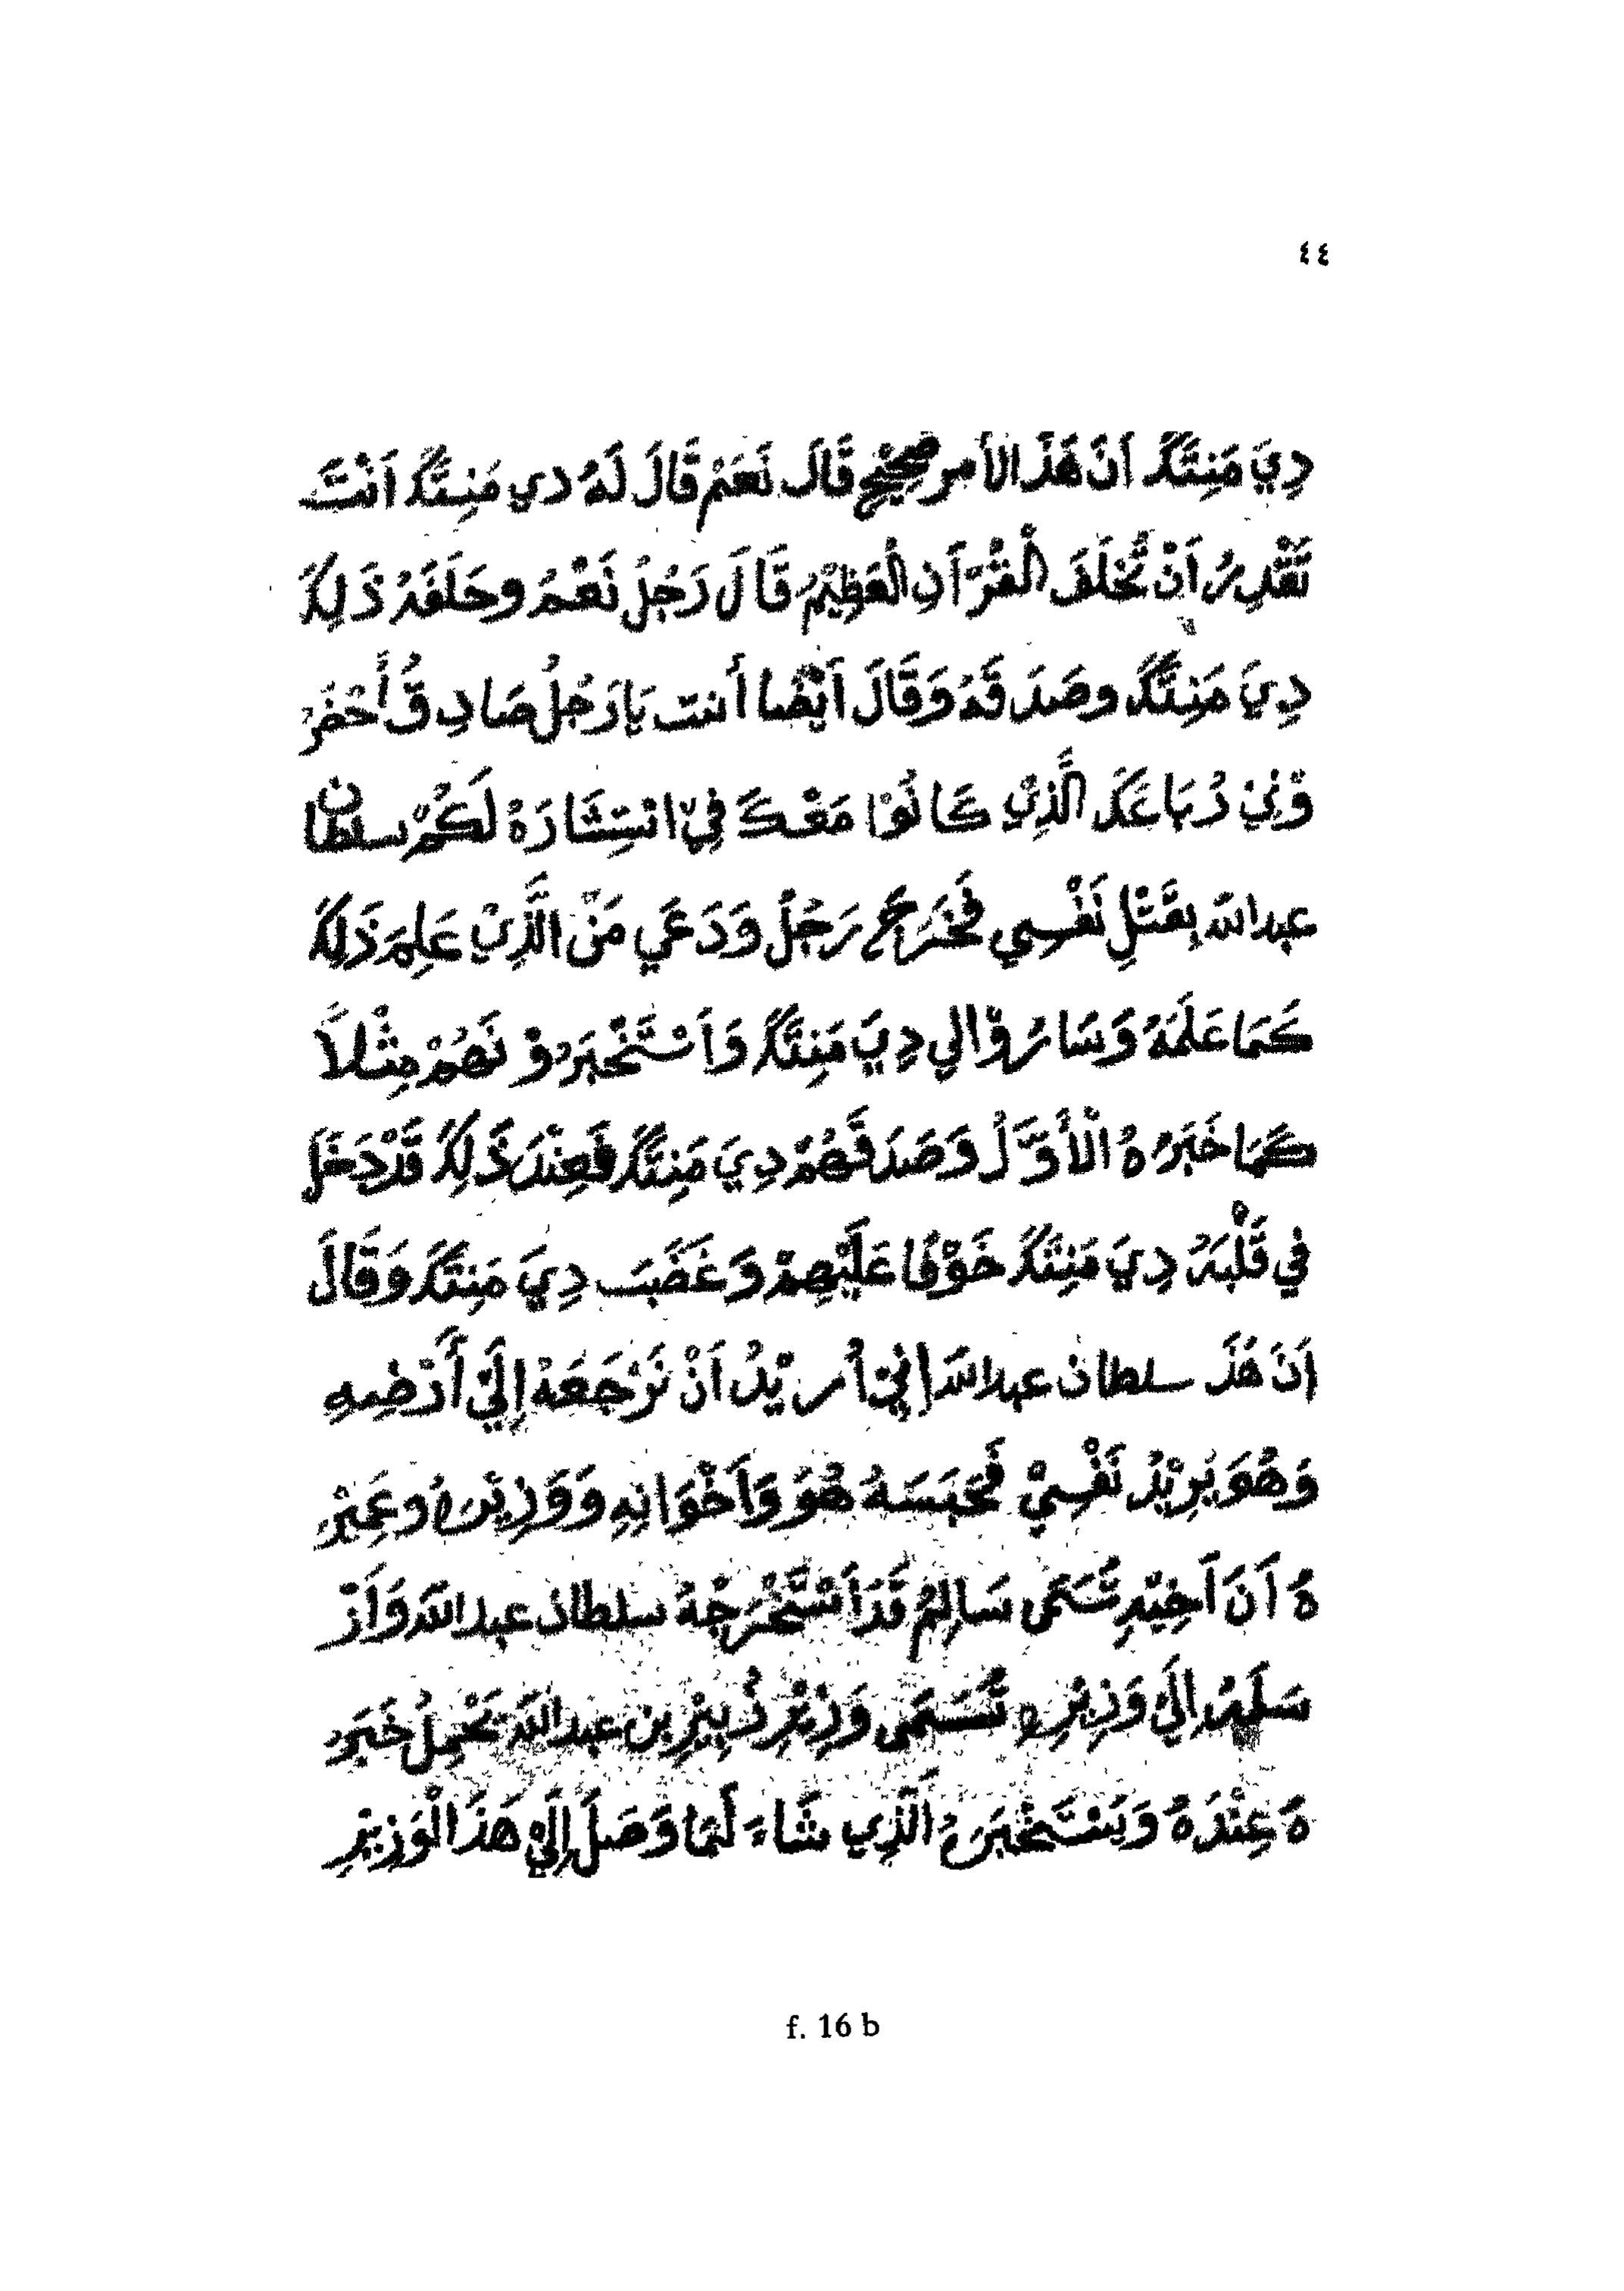 ٤٤
دِيَ مَنِتَكَ اَنَّ هَذَ الاَمر صحِيْح قَالَ نَعَمْ قَالَ لَهُ دي مَنِتَكَ اَنْتَ
تَقْدِرُ اَنْ تُخْلَفَ الْقُرْآنِ الْعَظِيْمُ قَالَ رَجُلُ نَعْمُ وحَلَفَهُ ذَلِكَ
دِيَ مَنِتَكَ وصَدَقَهُ وَقَالَ اَيْضًا أنت يَارَجُلُ صَادِقُ أَحْضَرُ
وْنِيْ رُبَاعَكَ الَّذِيْ كَانُوْا مَعْكَ فِيْ انْتِشَارَهْ لَكُمْ سلطان
عبدالله بِقَتْلِ نَفْسِي فَخَرَجَ رَجُلُ وَدَعَي مَنْ الَّذِيْ عَلِمَ ذَلِكَ
كَمَا عَلَمَهُ وَسَارُوْا الي دِيَ مَنِتَكَ وَاَسْتَخْبَرُوْنَهُمْ مِثْلاً
كَمَا خَبَرُهُ الْأَوَّلُ وَصَدَقَهُمْ دِيَ مَنِتَكَ فَعِنْدَ ذَلِكَ قَدْ دَخَلَ
في قَلْبَهُ دِيَ مَنِتَكَ خَوْفًا عَلَيْهِمْ وَغَضَبَ دِيَ مَنِتَكَ وَقَالَ
اَنَ هَذَ سلطان عبدالله إِنِيْ أُرِيْدُ اَنْ نَرْجَعَهْ إِلَيْ أَرْضِهِ
وَهُوَ يُرِيْدُ نَفْسِيْ فَحَبَسَهُ هُوَ وَاَخْوَانِهِ وَوَزِيْرَهُ وعَمِيْرُ
هُ اَنَ اَخِيْهِ تُسَمَى سَالِمُ قَدَ اَسْتَخْرَجْهُ سلطان عبدالله وَاَرْ
سَلَهُ اِلَيْ وَزِيْرِهِ تُسَمَى وَزِيْرِ زُبِيْرِ بن عبدالله تَحْمِلُ خَبَرُ
هُ عِنْدَهُ وَيَسْتَخْبَرَهُ الَّذِي شَاءَ لَمَا وَصَلَ إِلَيْ هَذَا الْوَزِيْرِ
f. 16 b